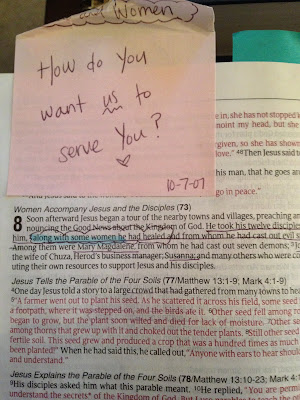 Women
How do You
want us to
serve You?
10-7-07
in, she has not stopped
my head, but she
so she has shown
love." 48Then Jesus said
man, that he goes
go in peace."
Women Accompany Jesus and the Disciples (73)
8 Soon afterward Jesus began a tour of the nearby towns and villages, preaching
nouncing the Good News about the Kingdom of God. He took his twelve
along with some women he had healed and from whom he had cast out evil
Among them were Mary Magdalene, from whom he had cast out seven demons;
the wife of Chuza, Herod's business manager; Susanna; and many others who were
uting their own resources to support Jesus and his disciples.
Jesus Tells the Parable of the Four Soils (77/Matthew 13:1-9; Mark 4:1-9)
4One day Jesus told a story to a large crowd that had gathered from many towns to
5"A farmer went out to plant his seed. As he scattered it across his field, some seed
a footpath, where it was stepped on, and the birds ate it. 6Other seed fell among
began to grow, but the plant soon wilted and died for lack of moisture. 7Other
among thorns that grew up with it and choked out the tender plants. 8Still other seed
fertile soil. This seed grew and produced a crop that was a hundred times as much
been planted!" When he had said this, he called out, "Anyone with ears to hear should
and understand."
Jesus Explains the Parable of the Four Soils (78/Matthew 13:10-23; Mark
9His disciples asked him what this parable meant. 10He replied, "You are
understand the secrets* of the Kingdom of God. But I use parables